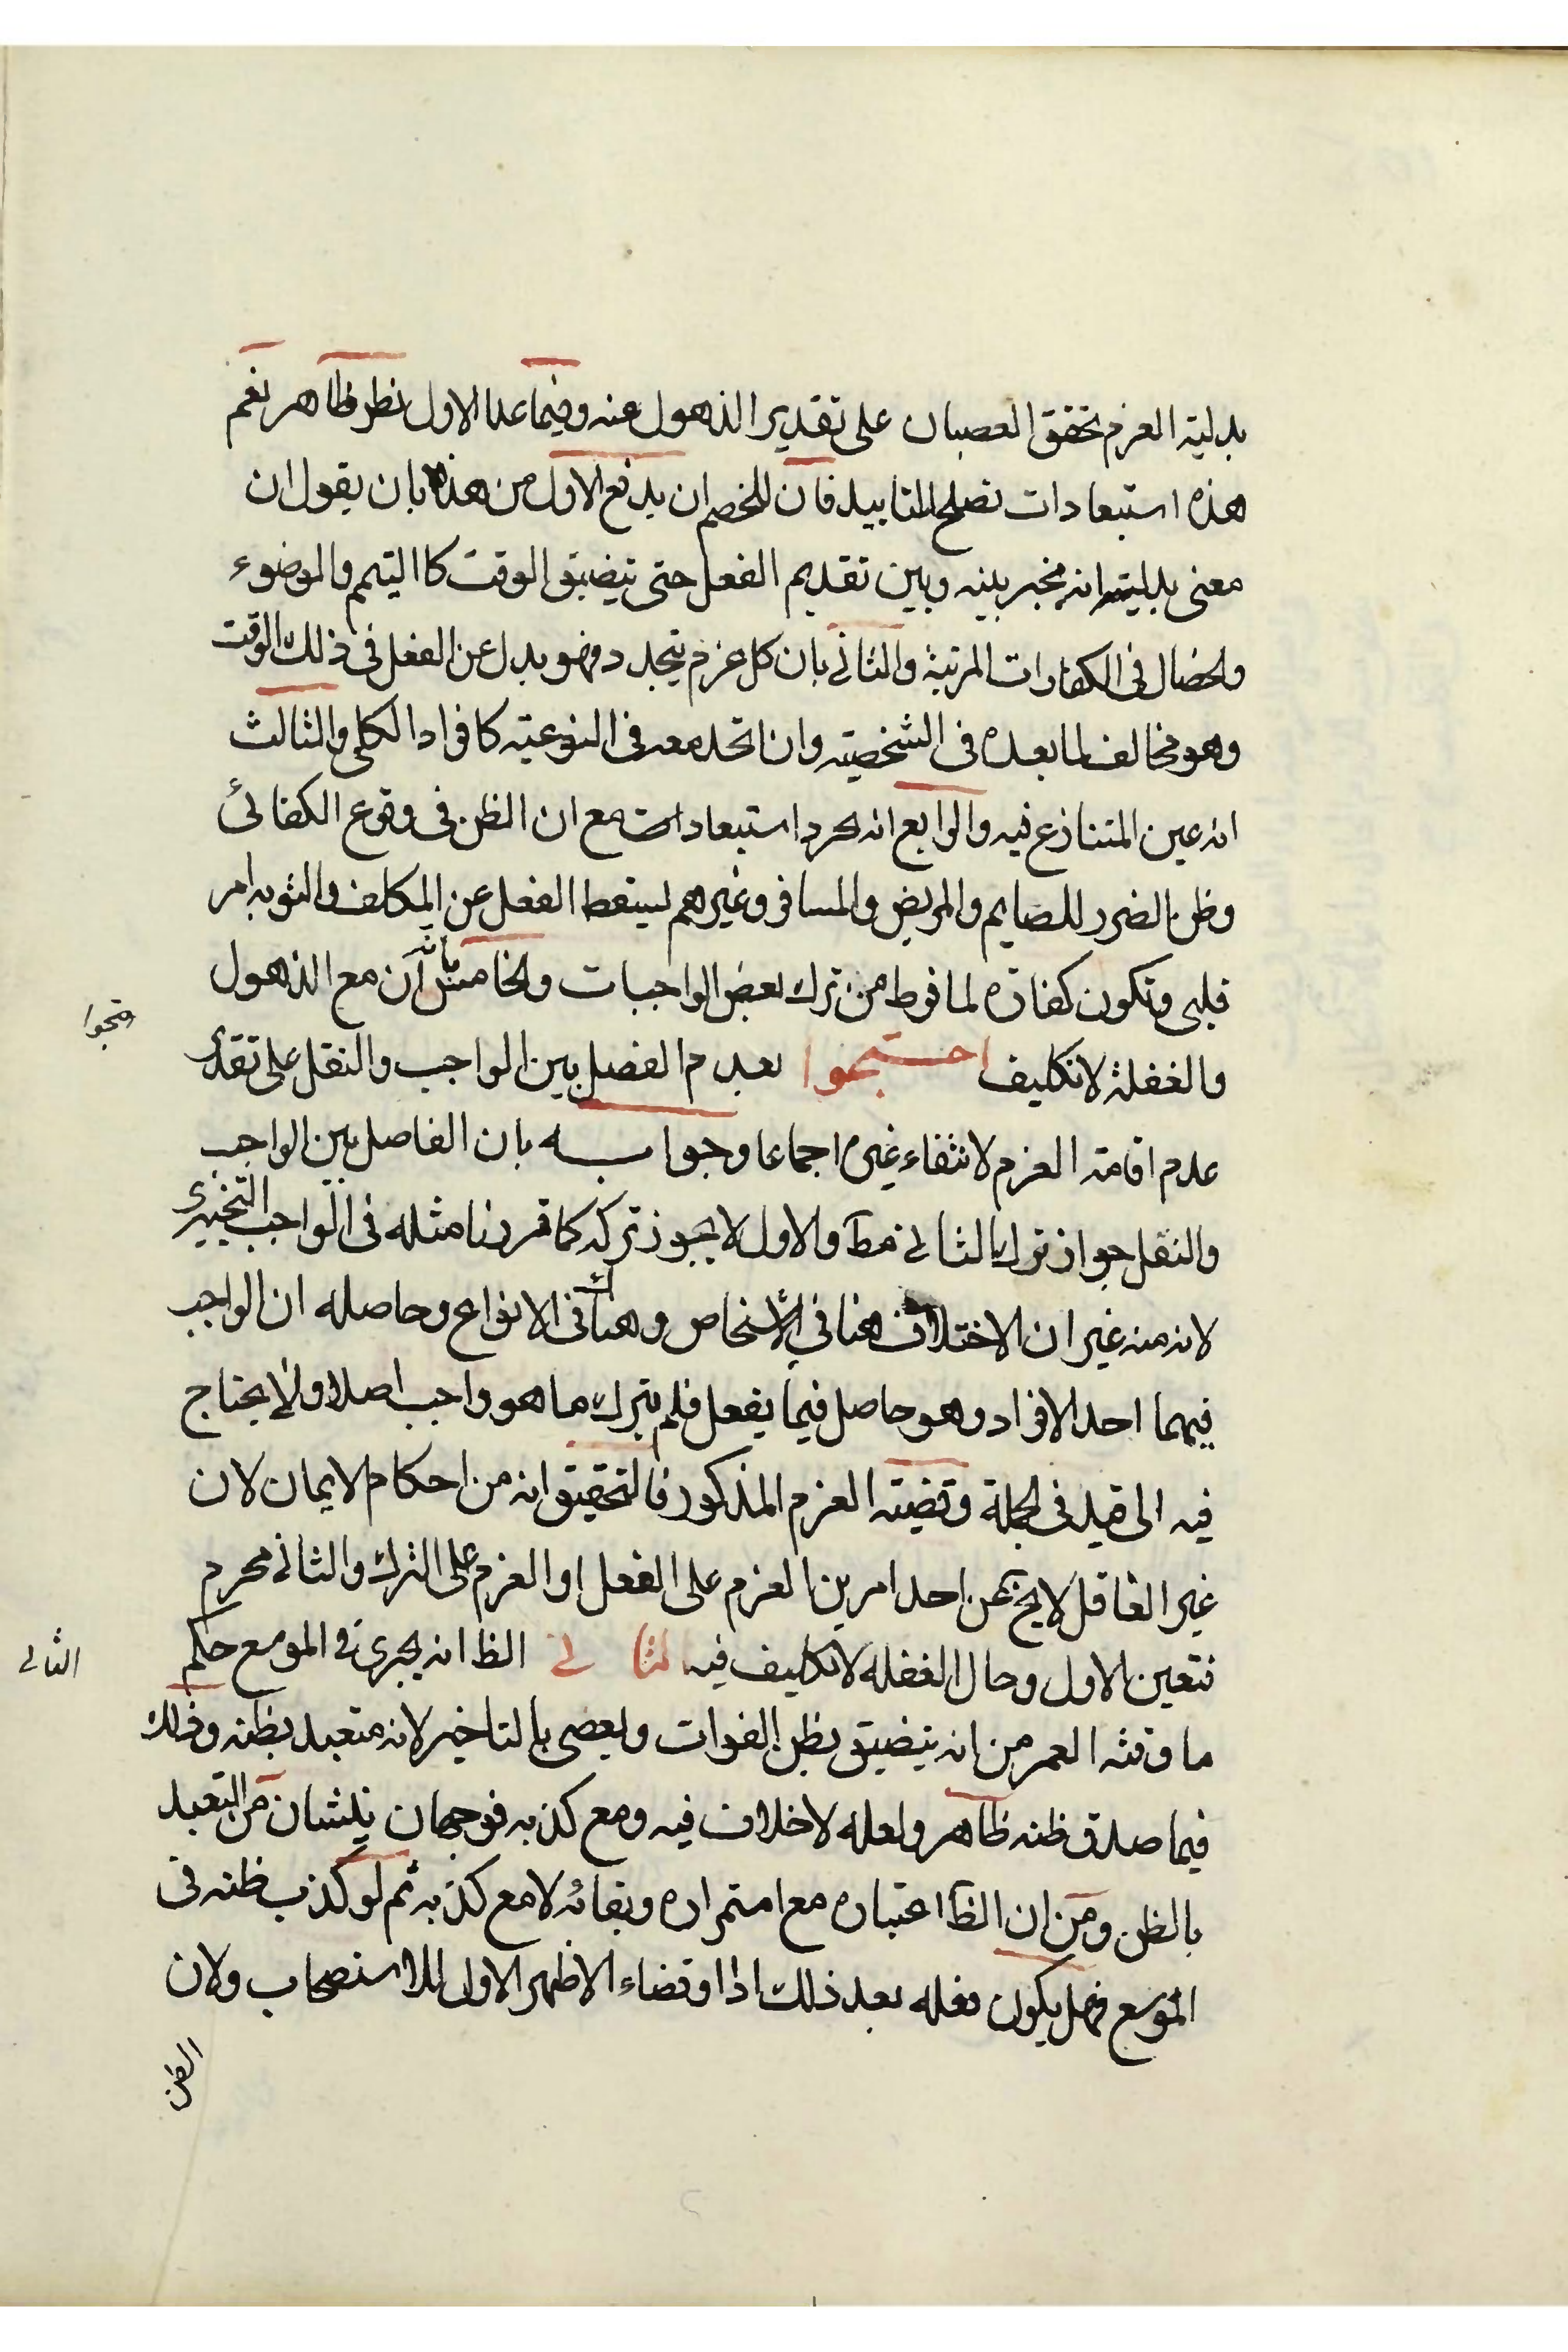 بدلية العزم تحقق العصيان على تقدير الذهول عنه وفيما عدا الاول نظر ظاهر نعم
هذه استبعادات تصلح للتاييد فان للخصم ان يدفع الاول من هذه بان يقول ان
معنى بدليته انه مخير بينه وبين تقديم الفعل حتى يتضيق الوقت كا التيمم والوضوء
ولخصال فى الكفارات المرتبة والثانى بان كل عزم يتجدد فهو بدل عن الفعل فى ذلك الوقت
وهو مخالف لما بعده فى الشخصية وان اتحد معه فى النوعية كافراد الكلى والثالث
انه عين المتنازع فيه والرابع انه مجرد استبعادات مع ان الظن فى وقوع الكفائى
وظن الضرر للصايم والمريض والمسافر وغيرهم ليسقط الفعل عن المكلف والتوبه امر
قلبى وتكون كفارة لما فرط من ترك بعض الواجبات ولخامس بانه ان مع الذهول
والغفلة لا تكليف احتجوا بعدم الفصل بين الواجب والنفل على تقدير
عدم اقامة العزم لانتفاء غيره اجماعا وجوابه بان الفاصل بين الواجب
والنفل جواز ترك الثانى مط والاول لا يجوز تركه كما قررنا مثله فى الواجب التخييرى
لانه منه غير ان الاختلاف هنا في الاشخاص وهناك فى الانواع وحاصله ان الواجب
فيهما احد الافراد وهو حاصل فيما يفعل فلم يترك ما هو واجب اصلا ولا يحتاج
فيه الى قيد فى لجملة وقضية العزم المذكور فالتحقيق انه من احكام الايمان لان
غير الغافل لا يخ عن احد امرين العزم على الفعل او العزم على الترك والثانى محرم
فتعين الاول وحال الغفله لا تكليف فيه الثانى الظ انه يجرى فى الموسع حكم
ما وقته العمر من انه يتضيق بظن الفوات ويعصى بالتاخير لانه متعبد بظنه وذلك
فيما صدق ظنه ظاهر ولعله لا خلاف فيه ومع كذبه فوجهان ينشان من التعبد
بالظن ومن ان الظا اعتباره مع استمراره وبقائه لا مع كذبه ثم لو كذب ظنه فى
الموسع فهل يكون فعله بعد ذلك اداا وقضاء الاظهر الاول للاستصحاب ولان
الظن
الثانى